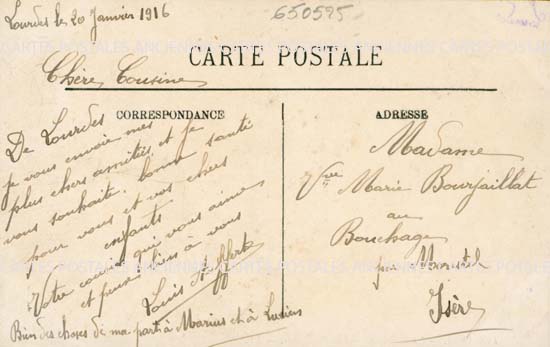 Lourdes le 20 Janvier 1916
650595
CARTE POSTALE
Chère Cousine
CORRESPONDANCE
De Lourdes
je vous envoie mes
plus chers amitiés et je
vous souhaite bonne santé
pour vous et vos chers
enfants
Votre cousin qui vous aime
et pense bien à vous
Louis
Bien des choses de ma part à Marius et à Lucien
ADRESSE
Madame
Vve Marie Bourjaillat
au
Bouchage
par Morestel
Isère